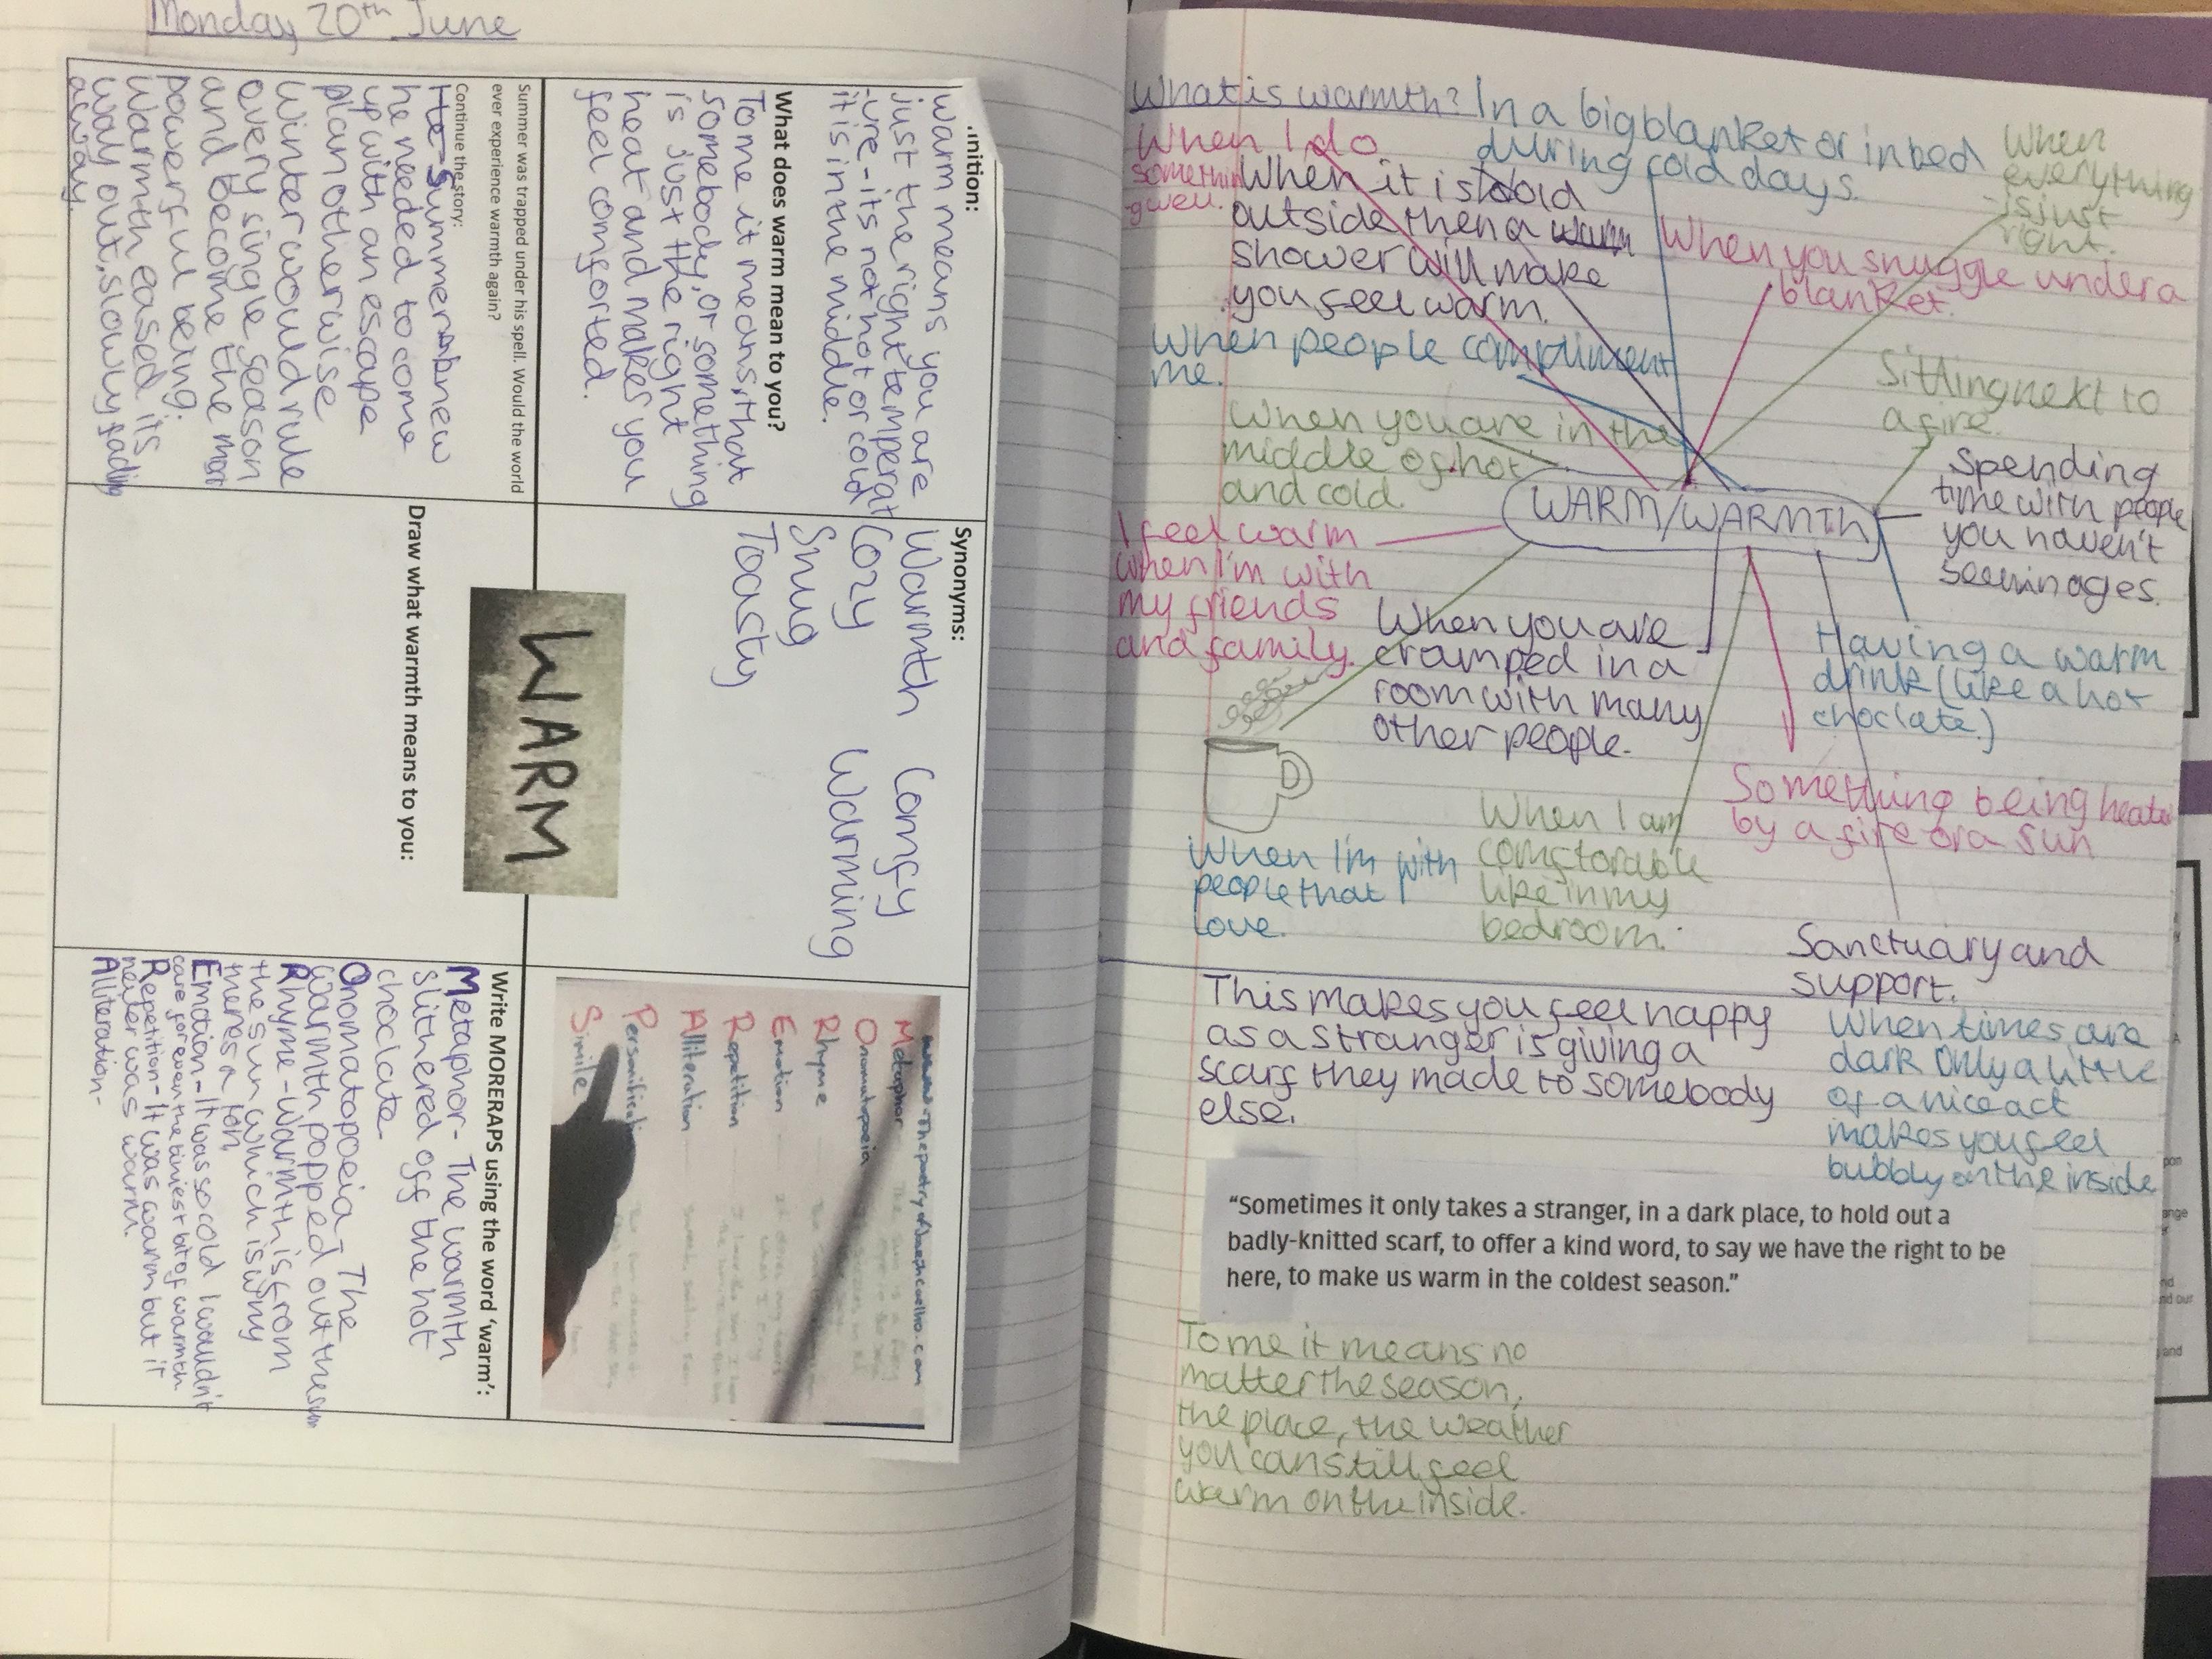 Monday 20th June
.inition:
warm means you are
just the right temperat
-ure-its not hot or cold
it is in the middle.
What does warm mean to you?
To me it means, that
somebody, or something
is just the right
heat and makes you
feel comforted.
Synonyms:
Warmth Comfy
Cozy Warming
Snug
Toasty
Metaphor
Onomatopoeia
Rhyme
Emotion
Repetition
Alliteration
Personificati
Simile
WARM
Summer was trapped under his spell. Would the world
ever experience warmth again?
Continue the story:
He Summer knew
he needed to come
up with an escape
plan otherwise
Winter would rule
every single season
and become the most
powerful being.
Warmth eased its
way out, slowly fading
away.
Draw what warmth means to you:
Write MORERAPS using the word 'warm':
Metaphor- The warmth
slithered off the hot
choclate.
Onomatopoeia- The
warmth popped out the sun
Rhyme-Warmth is from
the sun which is why
theres a ton,
Emotion-It was so cold I wouldn't
care for even the tiniest bit of warmth
Repetition-It was warm but it
neiter was warm.
Alliteration-
What is warmth?
In a big blanket or in bed
during cold days.
When
everything
-is just
right.
When I do
somethin
-g well.
When it is cold
outside then a warm
shower will make
you feel warm.
When you snuggle under a
blanket.
When people compliment
me.
Sitting next to
a fire.
When you are in the
middle of hot
and cold.
WARM/WARMTH
Spending
time with people
you haven't
seen in ages.
I feel warm
when I'm with
my friends
and family.
When you are
cramped in a
room with many
other people.
Having a warm
drink (like a hot
choclate.)
Something being heated
by a fire or a sun
When I'm with
people that I
love.
When I am
comftorable
like in my
bedroom.
Sanctuary and
support.
This makes you feel happy
as a stranger is giving a
scarf they made to somebody
else.
When times are
dark only a little
of a nice act
makes you feel
bubbly on the inside
“Sometimes it only takes a stranger, in a dark place, to hold out a
badly-knitted scarf, to offer a kind word, to say we have the right to be
here, to make us warm in the coldest season.”
To me it means no
matter the season,
the place, the weather
you can still feel
warm on the inside.